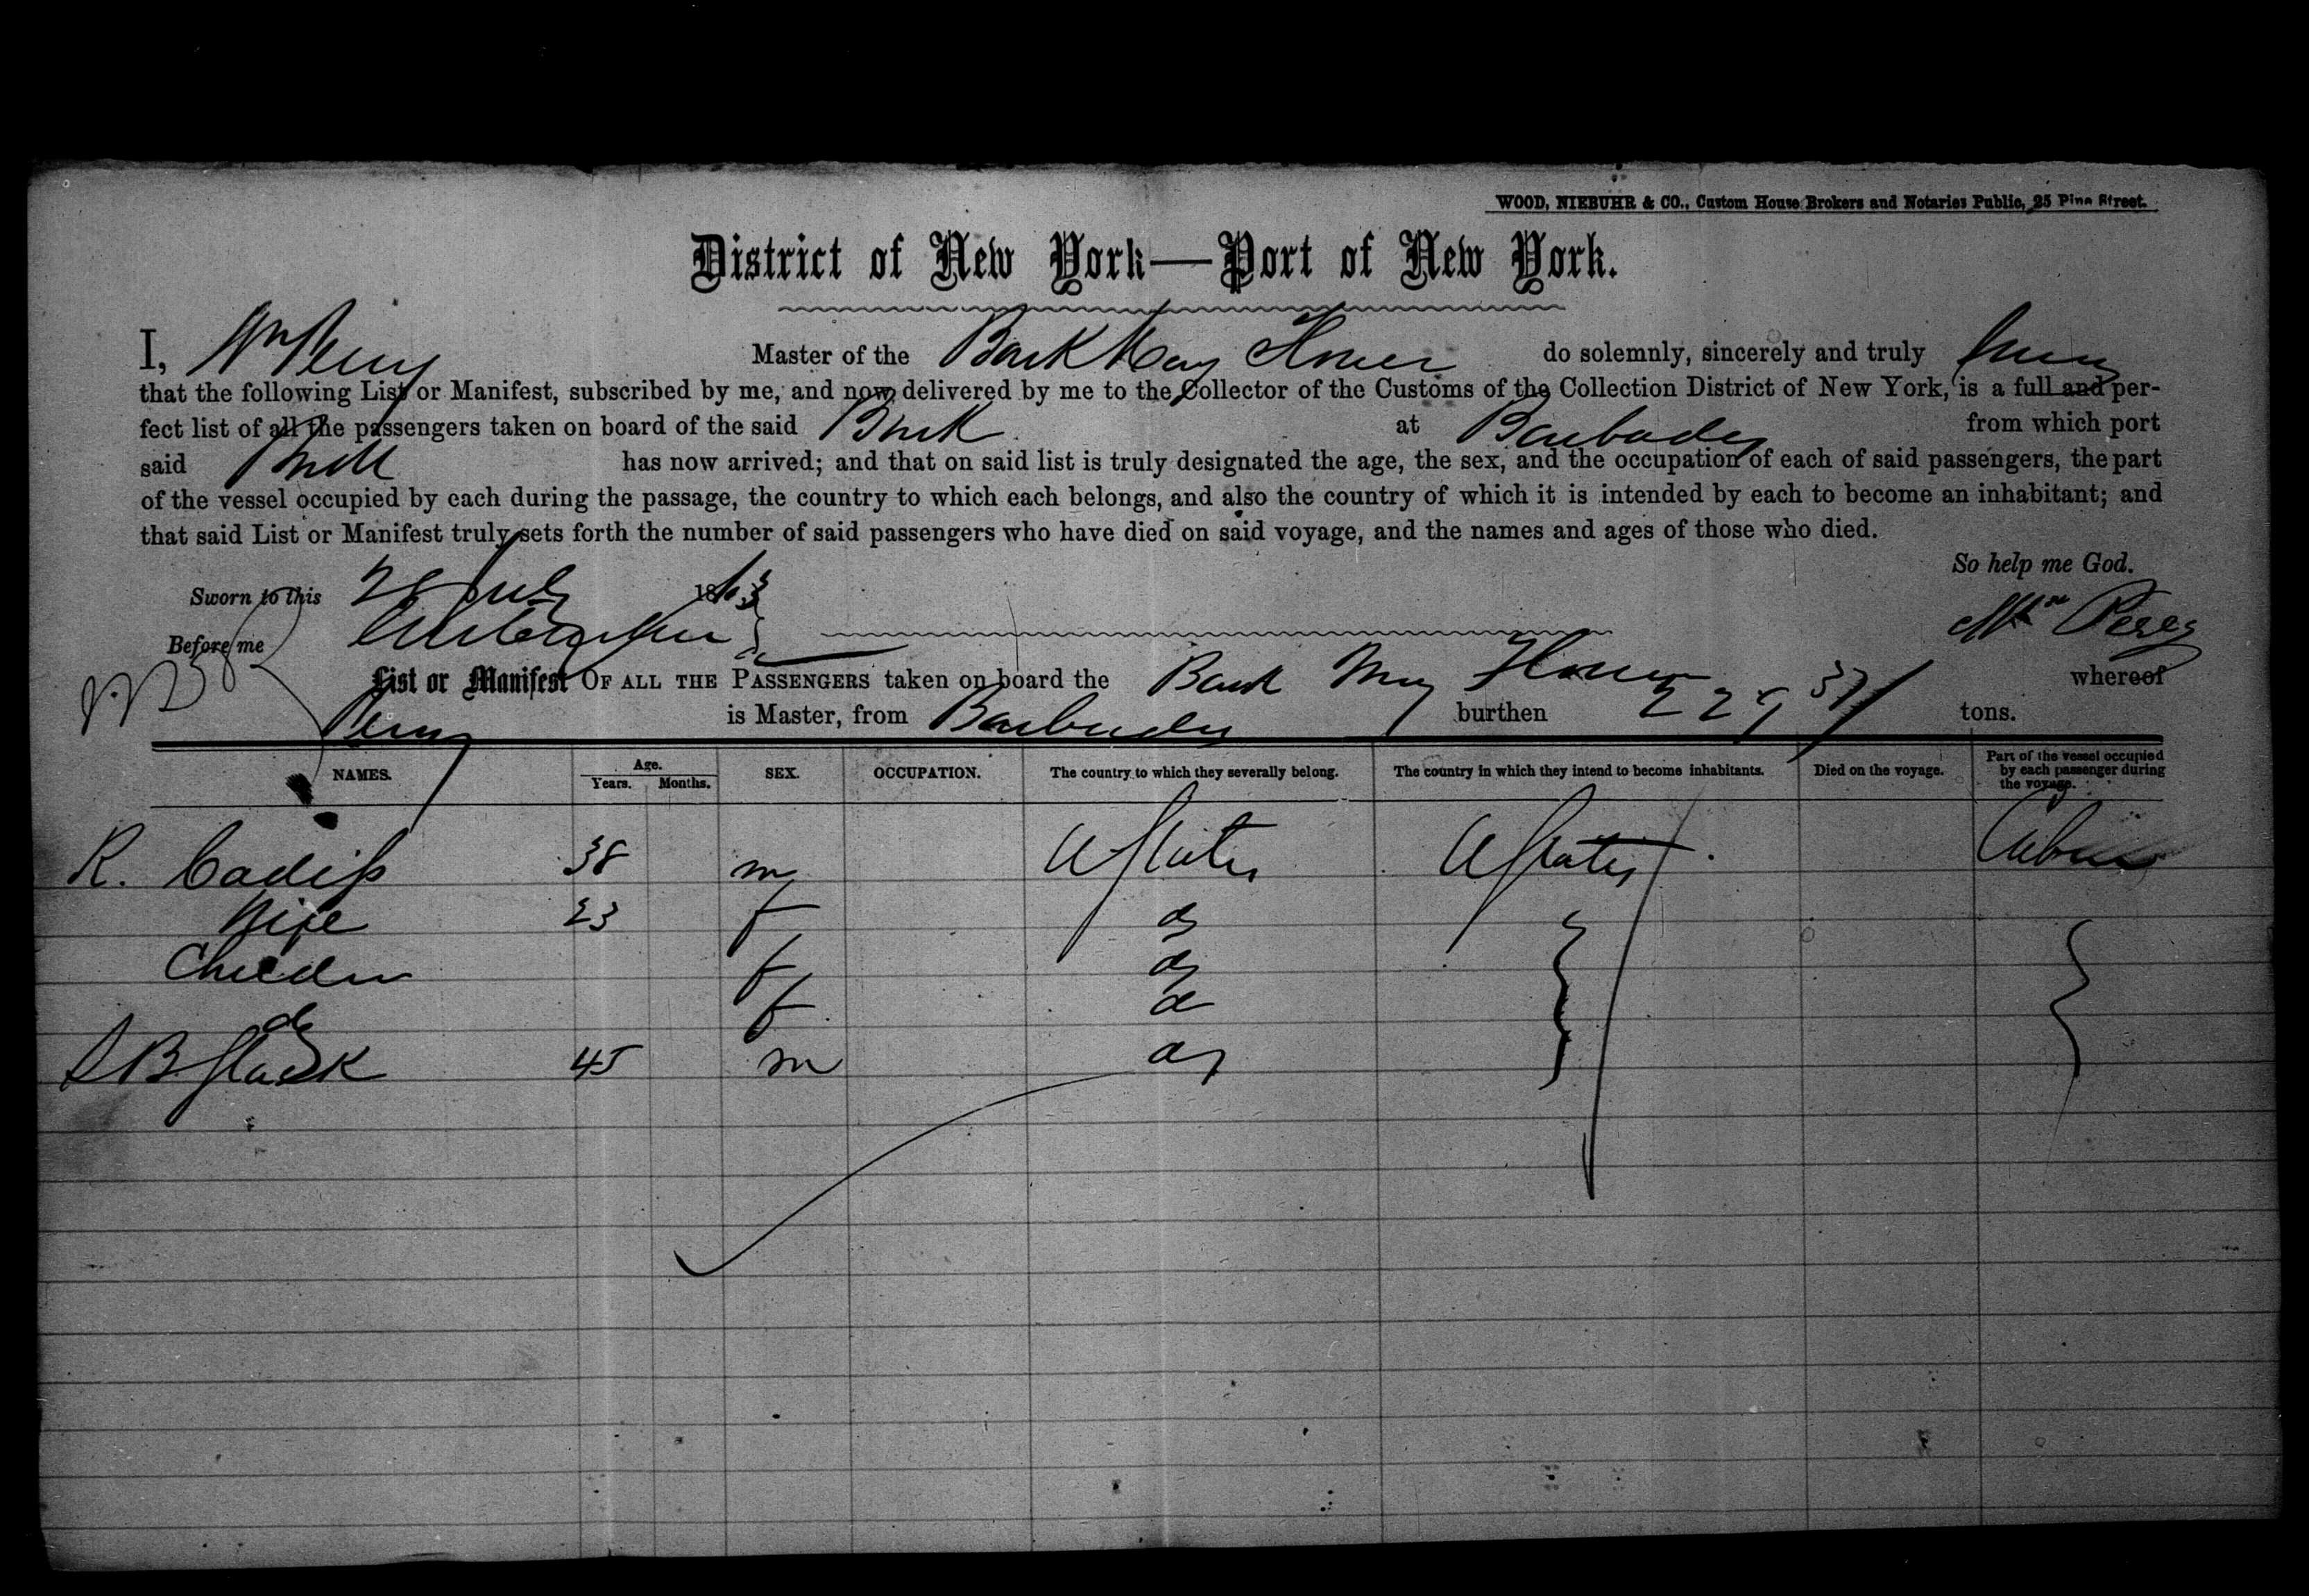 WOOD, NIEBUHR & CO., Custom House Brokers and Notaries Public, 25 Pine Street.
District of New York—Port of New York.
I, Wm Perry Master of the Bark May Flower do solemnly, sincerely and truly swear
that the following List or Manifest, subscribed by me, and now delivered by me to the Collector of the Customs of the Collection District of New York, is a full and per-
fect list of all the passengers taken on board of the said Bark at Barbados from which port
said Bark has now arrived; and that on said list is truly designated the age, the sex, and the occupation of each of said passengers, the part
of the vessel occupied by each during the passage, the country to which each belongs, and also the country of which it is intended by each to become an inhabitant; and
that said List or Manifest truly sets forth the number of said passengers who have died on said voyage, and the names and ages of those who died.
So help me God.
Sworn to this 28 July 1863
Before me
Wm Perry
List or Manifest OF ALL THE PASSENGERS taken on board the Bark May Flower whereof
Perry is Master, from Barbados burthen 229 37/ tons.
NAMES. Age. Years. Months. SEX. OCCUPATION. The country to which they severally belong. The country in which they intend to become inhabitants. Died on the voyage. Part of the vessel occupied by each passenger during the voyage.
R. Cadiss 38 m U States U States Cabin
Wife 23 f do
Children f do
do f do
S B Slack 45 m do